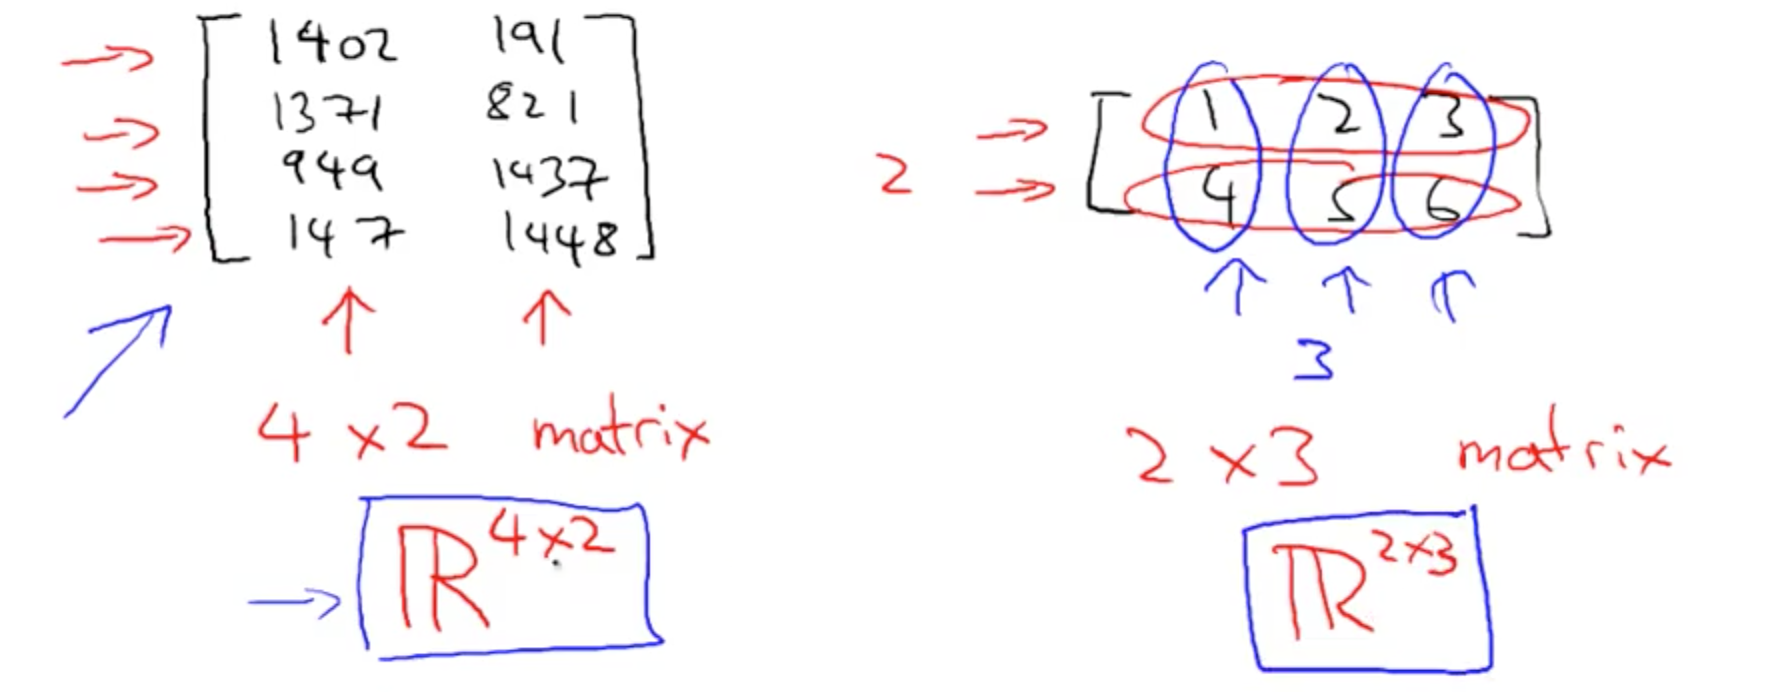 1402 191
1371 821
949 1437
147 1448
4 x 2 matrix
ℝ 4x2
1 2 3
2
4 5 6
3
2 x 3 matrix
ℝ 2x3